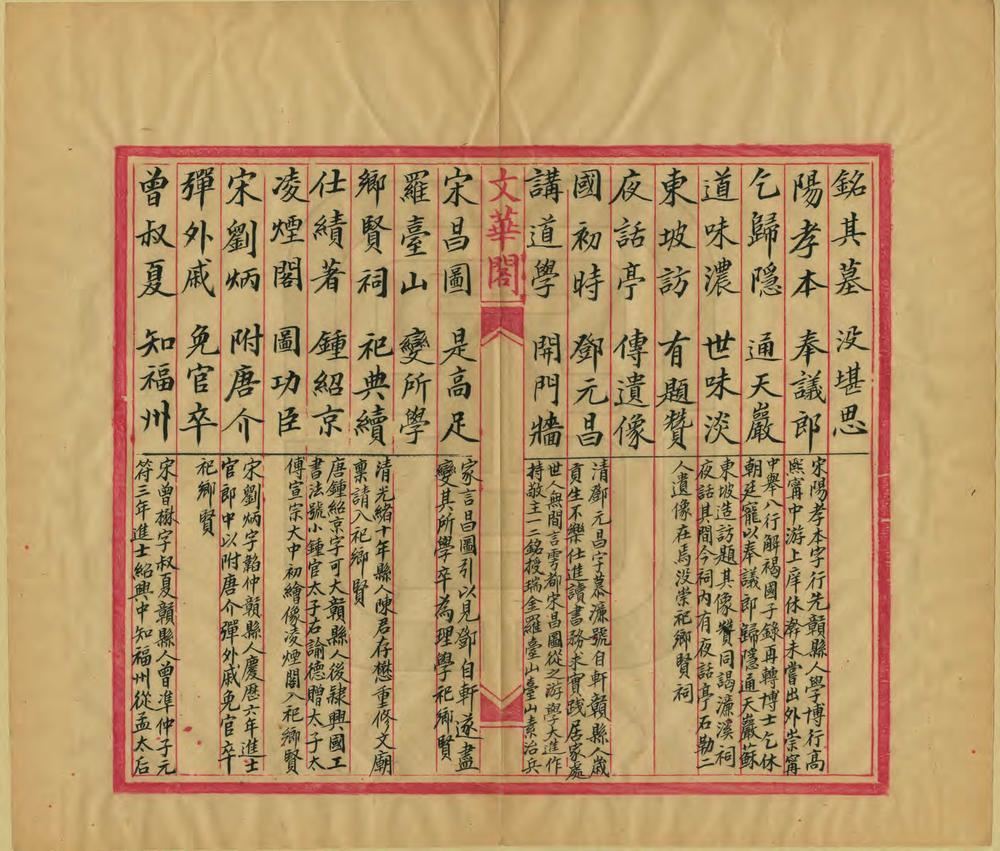 銘其墓 没堪思
陽孝本 奉議郎
乞歸隱 通天巖
道味濃 世味淡
東坡訪 有題贊
夜話亭 傳遺像
國初時 鄧元昌
講道學 開門牆
宋陽孝本字行先贛縣人學博行高
熙寧中游上庠休辭未嘗出外崇寧
中舉八行解褐國子錄再轉博士乞休
朝廷寵以奉議郎歸隱通天巖蘇
東坡造訪題其像贊同謁濂溪祠
夜話其間今祠內有夜話亭石勒二
人遺像在焉没崇祀鄉賢祠
清鄧元昌字慕濂號自軒贛縣人歲
貢生不樂仕進讀書務求實踐居家處
世人無間言雩都宋昌圖從之游與大進作
持敬主一二銘授瑞金羅臺山臺山素治兵
文華閣
宋昌圖 是高足
羅臺山 變所學
鄉賢祠 祀典續
仕績著 鍾紹京
凌煙閣 圖功臣
宋劉炳 附唐介
彈外戚 免官卒
曾叔夏 知福州
家言昌圖引以見鄧自軒遂盡
變其所學卒為理學祀鄉賢
清光緒十年縣人陳君存懋重修文廟
稟請入祀鄉賢
唐鍾紹京字可大贛縣人後隸興國工
書法號小鍾官太子右諭德贈太子太
傅宣宗大中初繪像凌煙閣入祀鄉賢
宋劉炳字韜仲贛縣人慶歷六年進士
官郎中以附唐介彈外戚免官卒
祀鄉賢
宋曾楙字叔夏贛縣人曾準仲子元
符三年進士紹興中知福州從孟太后